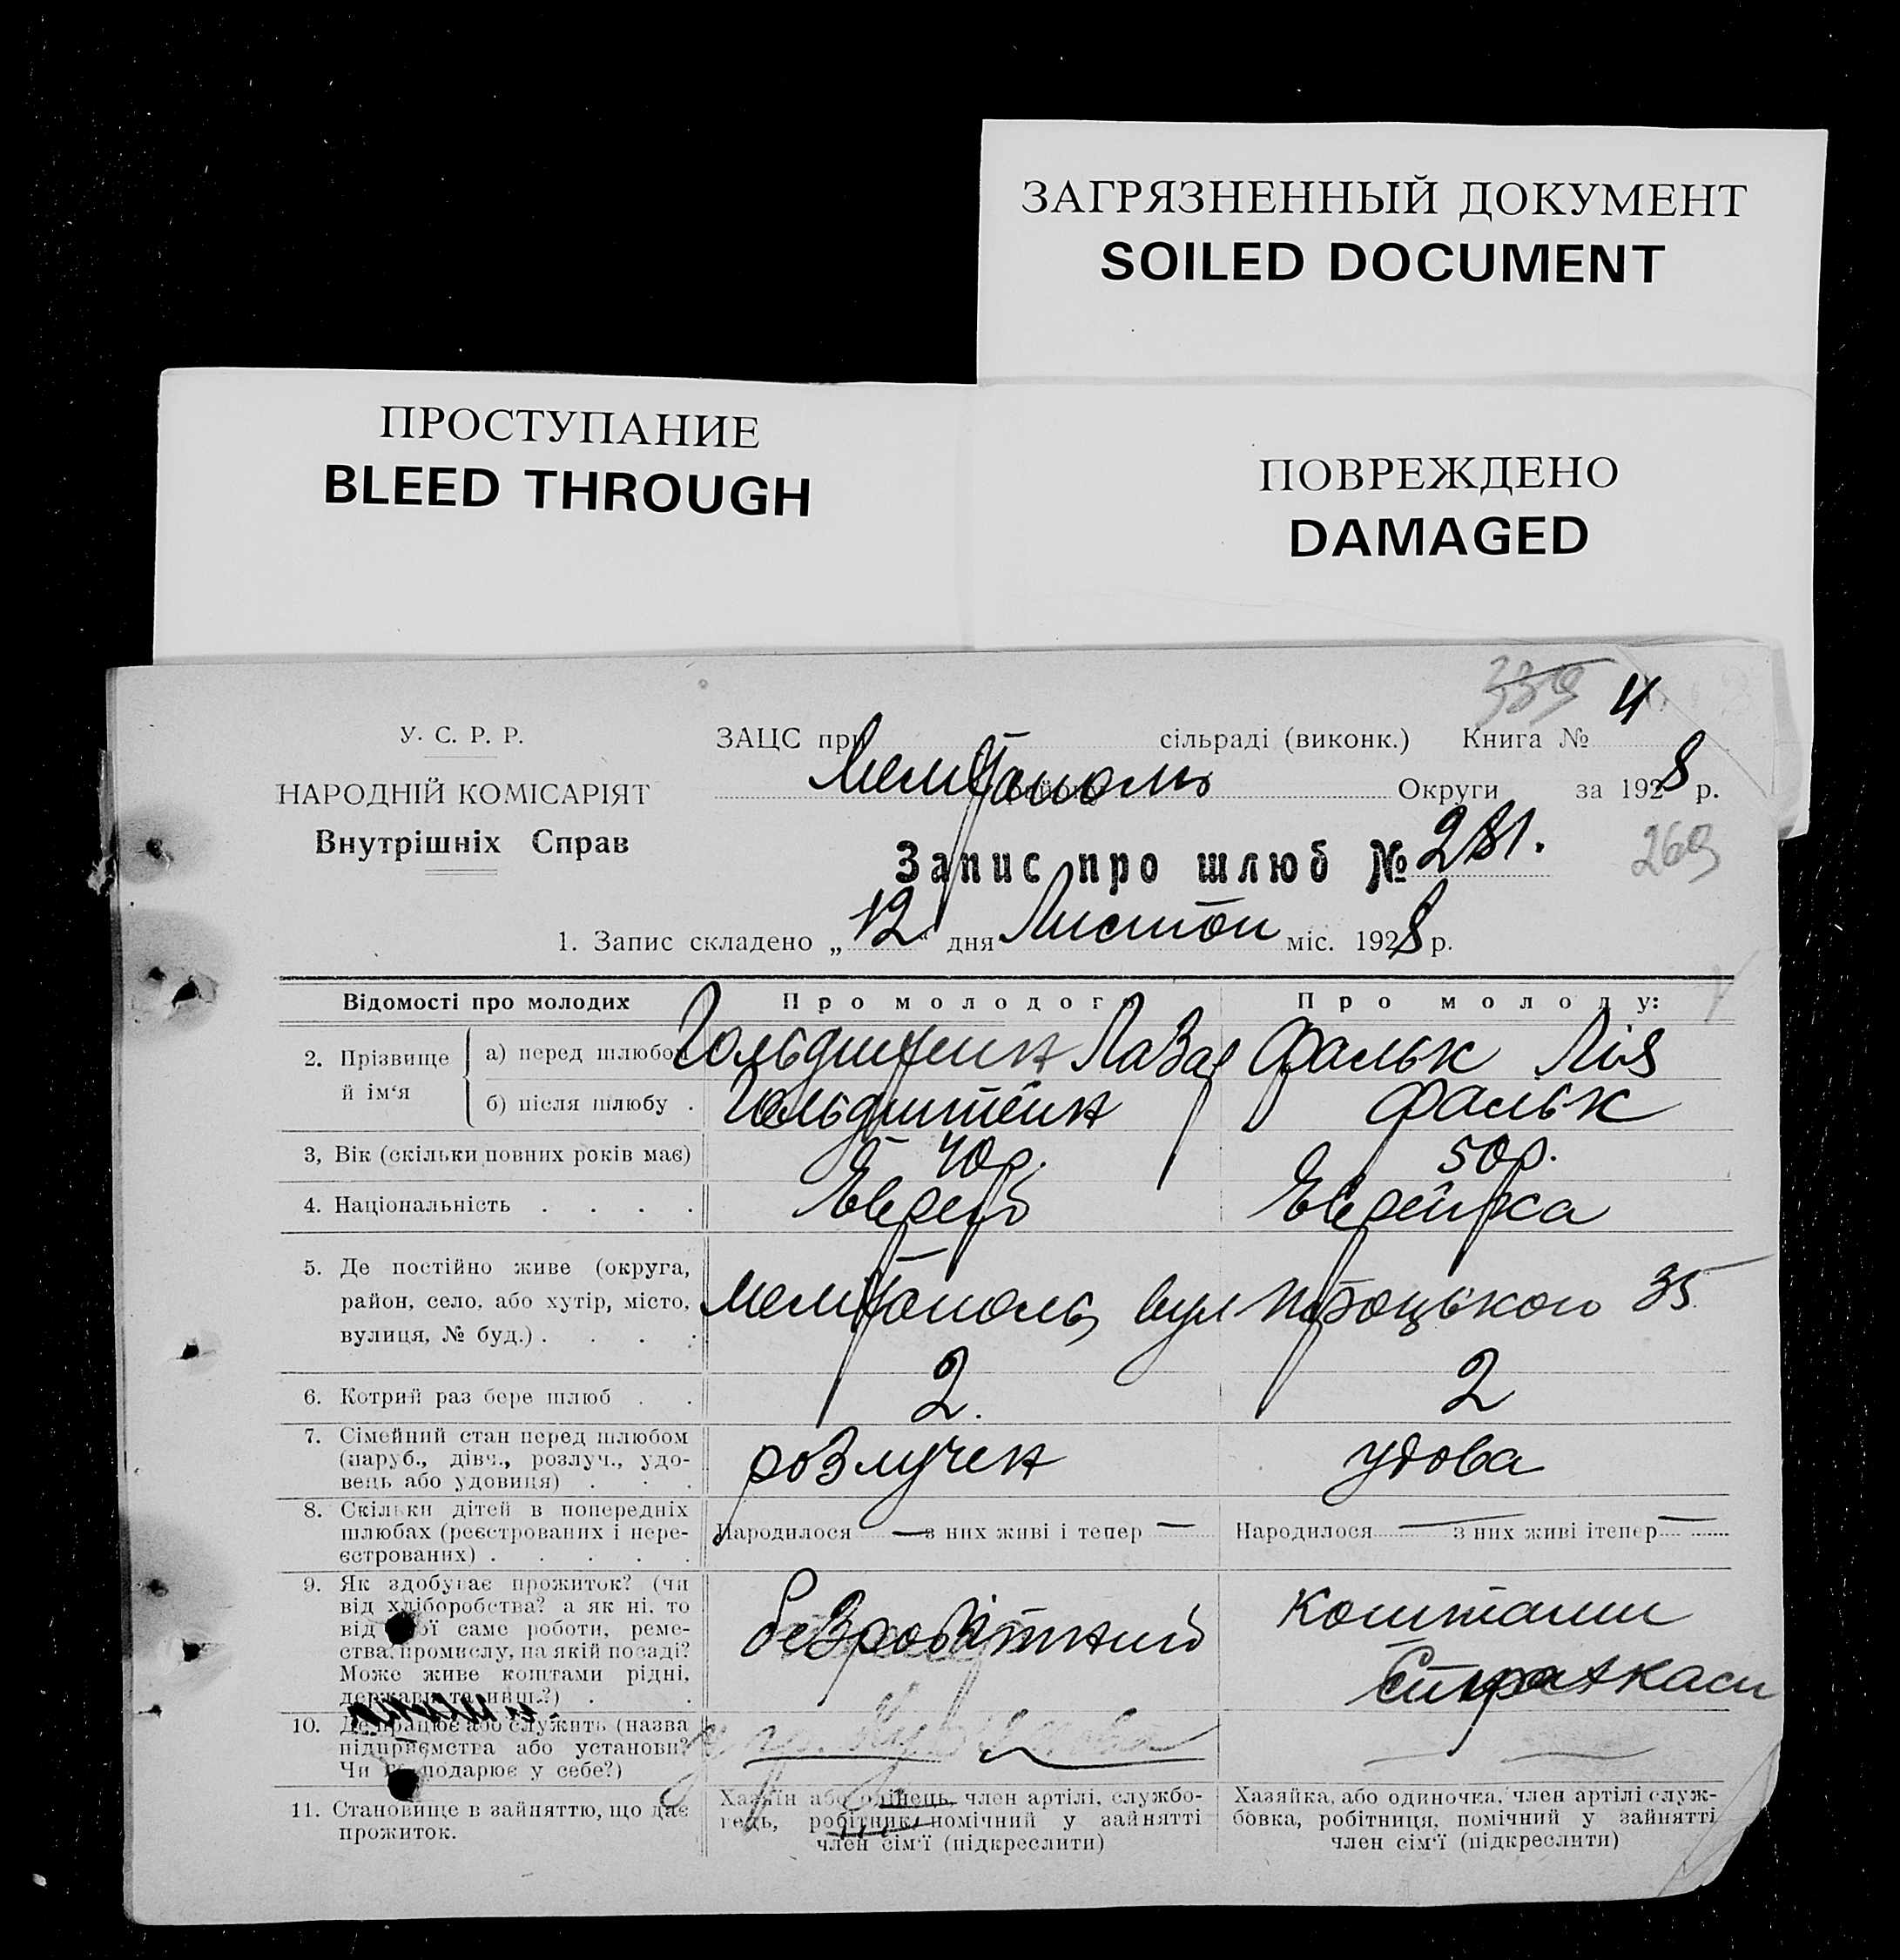 ЗАГРЯЗНЕННЫЙ ДОКУМЕНТ
SOILED DOCUMENT
ПРОСТУПАНИЕ
BLEED THROUGH
ПОВРЕЖДЕНО
DAMAGED
339 4
У. С. Р. Р.
НАРОДНІЙ КОМІСАРІЯТ
Внутрішніх Справ
ЗАЦС при сільраді (виконк.) Книга №
Мелітополь Округи за 1928 р.
Запис про шлюб № 281.
269
1. Запис складено „12" дня Листоп міс. 1928 р.
Відомості про молодих
Про молодого
Про молоду:
2. Прізвище й ім'я
а) перед шлюбом
Гольдштейн Лазар
Фальк Лія
б) після шлюбу .
Гольдштейн
Фальк
3, Вік (скільки повних років має)
40 р.
50 р.
4. Національність . . . .
Єврей
Єврейка
5. Де постійно живе (округа,
район, село, або хутір, місто,
вулиця, № буд.) . . . .
Мелітополь, вул Троцького 35
6. Котрий раз бере шлюб . .
2.
2
7. Сімейний стан перед шлюбом
(паруб., дівч., розлуч., удо-
вець або удовиця) . . .
розлучен
удова
8. Скільки дітей в попередніх
шлюбах (реєстрованих і нере-
єстрованих) . . . . .
Народилося — з них живі і тепер —
Народилося — з них живі і тепер —
9. Як здобуває прожиток? (чи
від хліборобства? а як ні, то
від якої саме роботи, реме-
ства, промислу, на якій посаді?
Може живе коштами рідні,
держави та инш.?) . .
безробітний
коштами
Страхкаси
10. Де працює або служить (назва
підприємства або установи?
Чи господарює у себе?)
11. Становище в зайняттю, що дає
прожиток.
Хазяїн або одинець, член артілі, службо-
вець, робітник, помічний у зайнятті
член сім'ї (підкреслити)
Хазяйка, або одиночка, член артілі служ-
бовка, робітниця, помічний у зайнятті
член сім'ї (підкреслити)